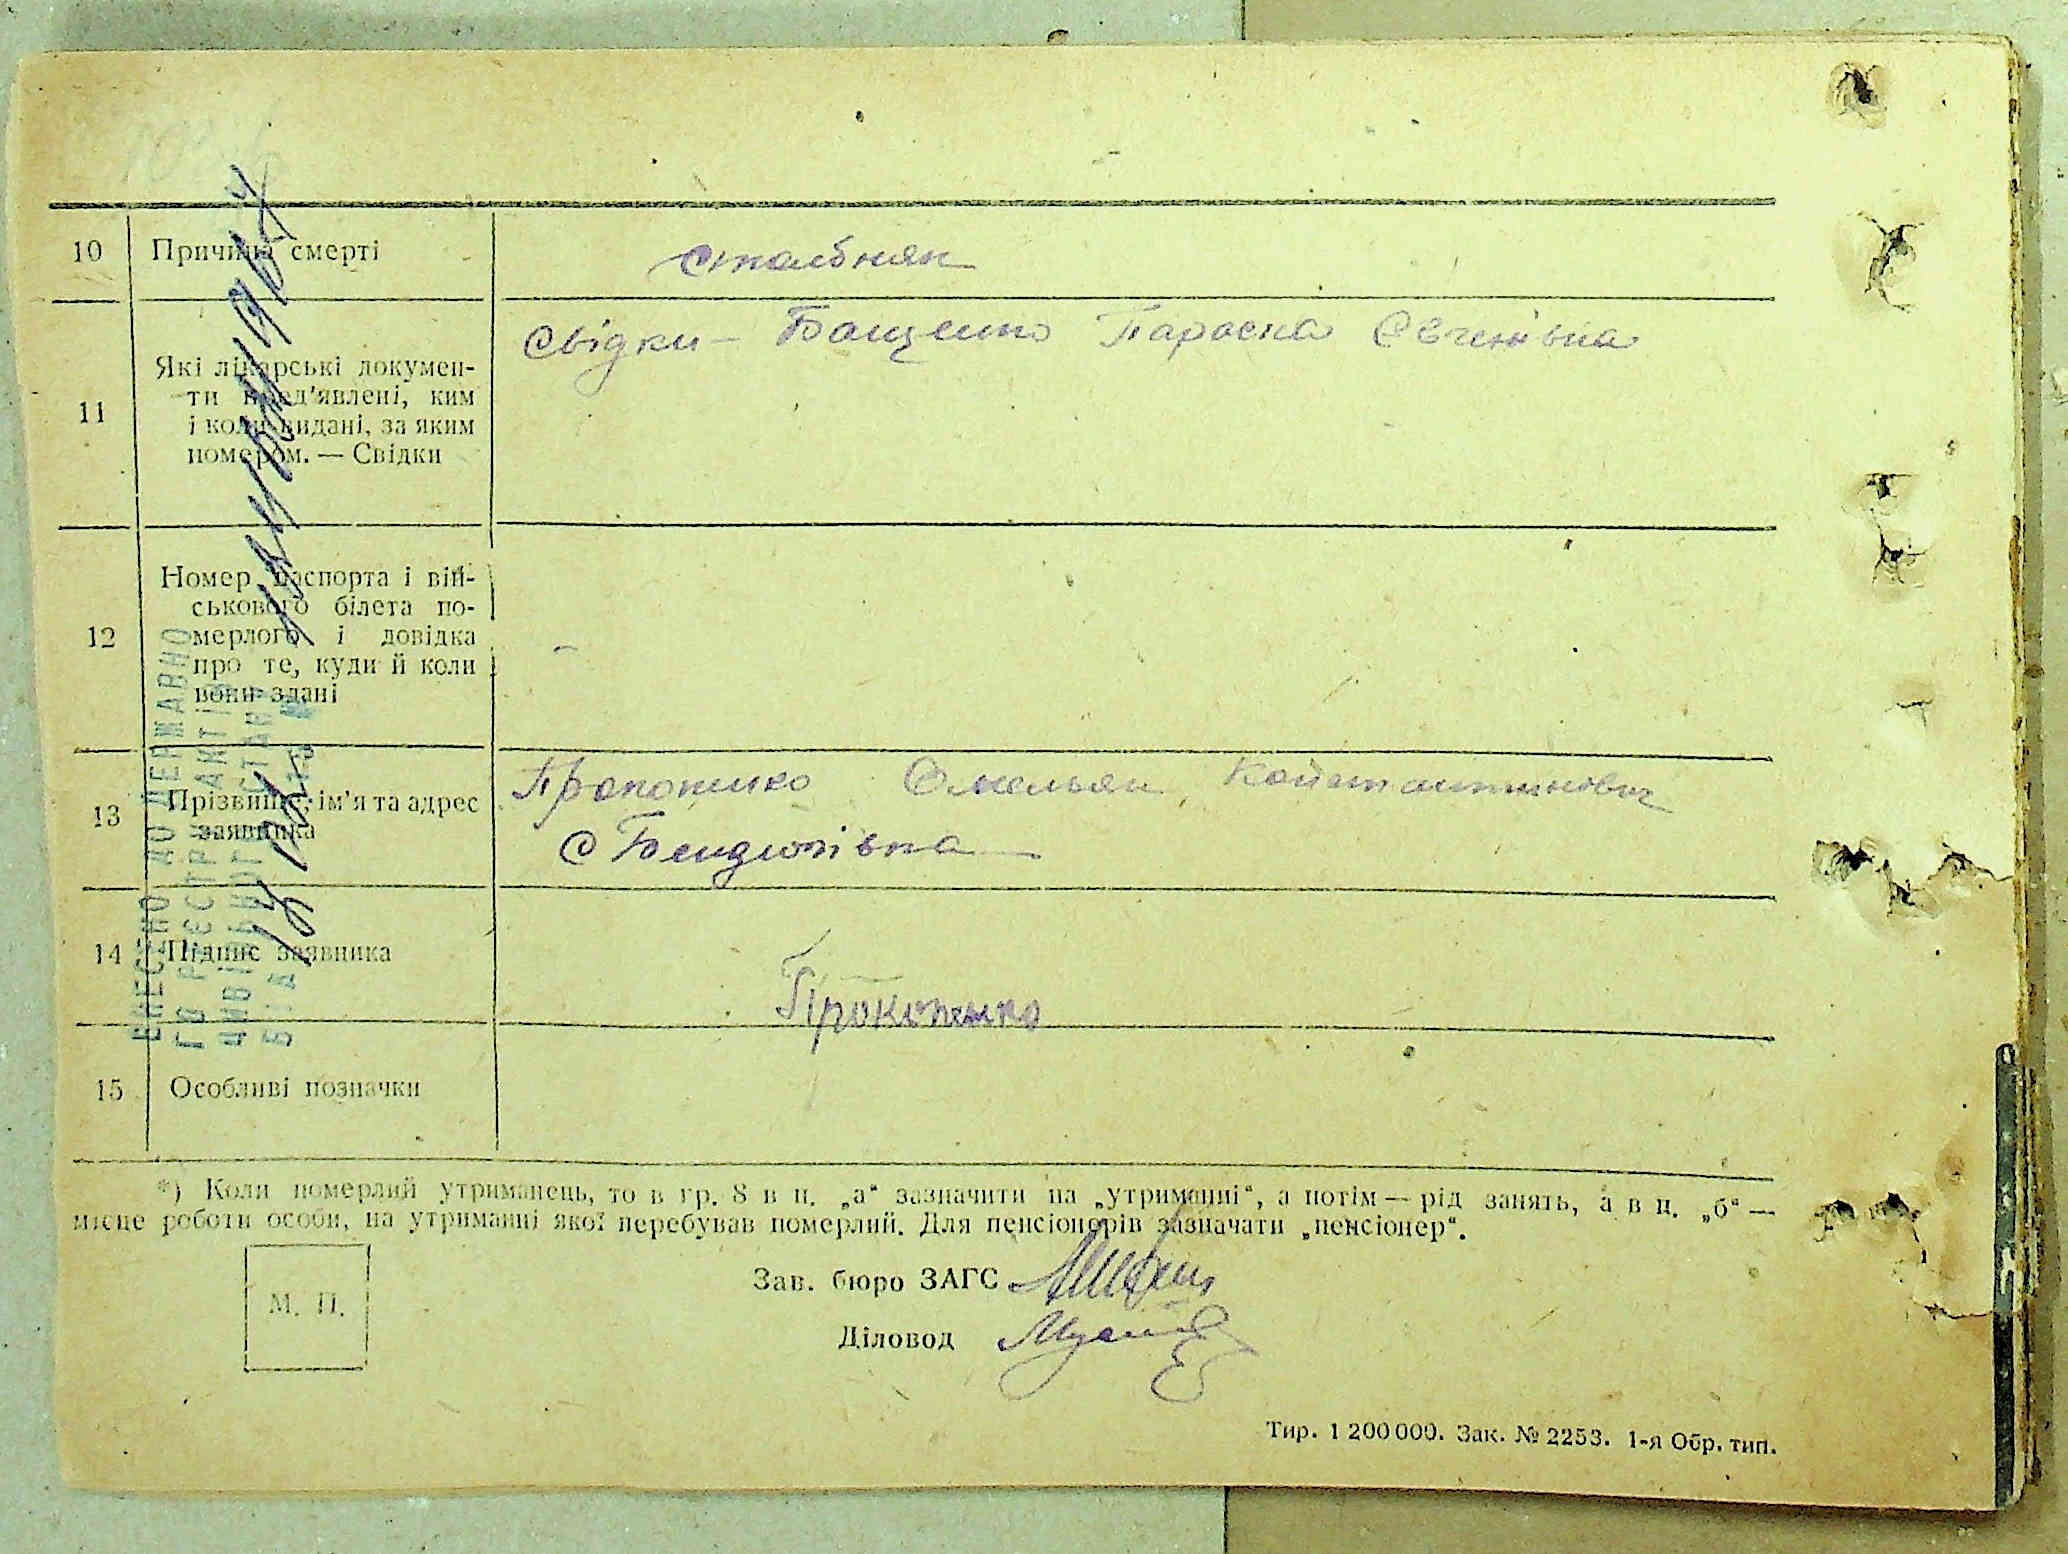 10 Причина смерті
Столбняк
11 Які лікарські докумен-
ти пред'явлені, ким
і коли видані, за яким
номером. — Свідки
Свідки – Бащенко Параска Євгенівна
12 Номер паспорта і вій-
ськового білета по-
мерлого і довідка
про те, куди й коли
вони здані
–
13 Прізвище, ім'я та адрес
заявника
Прокопенко Омельян Констянтинович
с Бендюгівка
14 Підпис заявника
Прокопенко
15 Особливі позначки
*) Коли померлий утриманець, то в гр. 8 в п. „а“ зазначити на „утриманні“, а потім — рід занять, а в п. „б“ —
місце роботи особи, на утриманні якої перебував померлий. Для пенсіонерів зазначати „пенсіонер“.
Зав. бюро ЗАГС
М. П.
Діловод
Тир. 1 200 000. Зак. № 2253. 1-я Обр. тип.
ВНЕСЕНО ДО ДЕРЖАВНО
ГО РЕЄСТРУ АКТІВ
ЦИВІЛЬНОГО СТАНУ